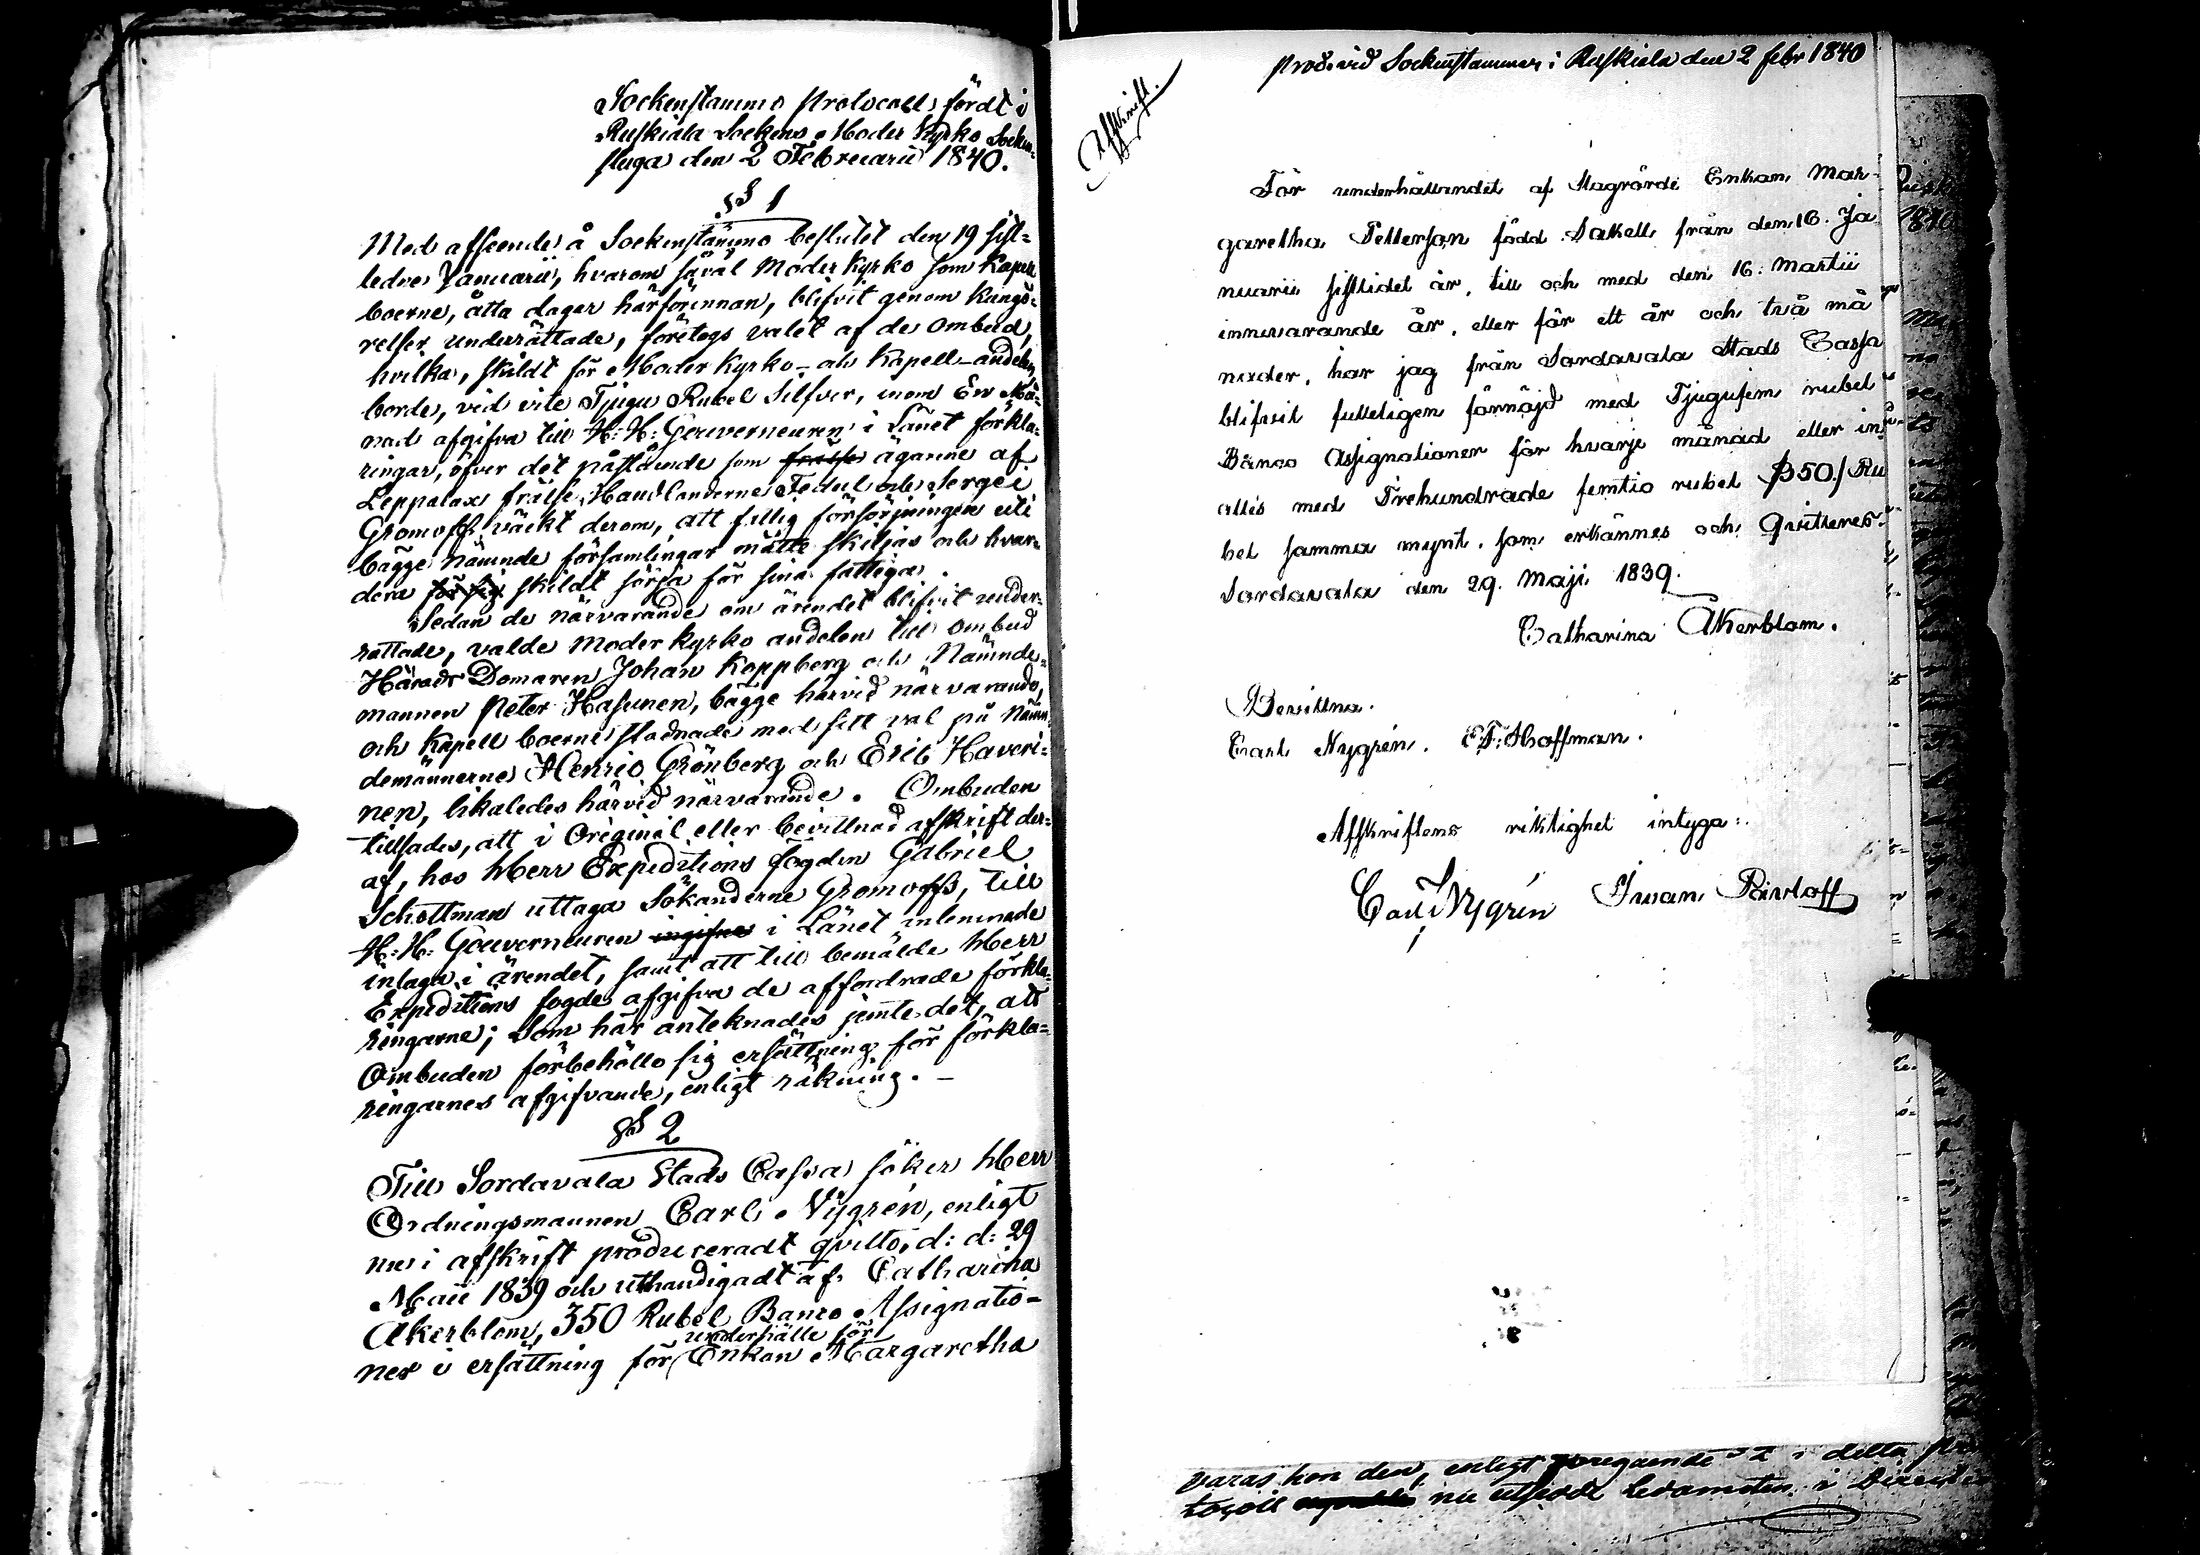 Sockenstämmo Protocoll, fördt i
Ruskiala Sockens Moder Kyrko Socken-
stuga den 2 Februarii 1840.
§ 1
Med afseende å Sockenstämmo beslutet den 19 sist-
ledne Januarii, hvarom såväl Moder kyrko som Kapell
boerne, åtta dagar härförinnan, blifvit genom kungö-
relser underrättade, företogs valet af de ombud,
hvilka, skildt för Moder Kyrko- och Kapell-andelen
borde, vid vite Tjugu Rubel Silfver, inom En Må-
nad afgifva till H: H: Gouverneuren i Länet förkla-
ringar, öfver det påstående som frälse ägarne af
Leppälax frälse, Handlanderne Fedul och Sergei
Gromoff, väckt derom, att fattig försörjningen uti
bägge nämnde församlingar måtte skiljas och hvar-
dera för sig skildt sörja för sina fattiga.
Sedan de närvarande om ärendet blifvit under-
rättade, valde Moderkyrko andelen till ombud
Härads Domaren Johan Koppberg och Nämnde-
mannen Peter Hasunen, bägge härvid närvarande,
och Kapell boerne stadnade med sitt val på Näm-
demännerne Henric Grönberg och Eric Haveri-
nen, likaledes härvid närvarande. Ombuden
tillsades, att i Original eller bevittnad afskrift der-
af, hos Herr Expeditions fogden Gabriel
Schottman uttaga Sökanderne Gromoffs, till
H: H: Gouverneuren ingifne i Länet inlemnade
inlaga i ärendet, samt att till bemälde Herr
Expeditions fogde afgifva de affordrade förkla-
ringarne; Som här anteknades jemte det, att
Ombuden förbehöllo sig ersättning för förkla-
ringarnes afgifvande, enligt räkning. –
§ 2
Till Sordavala Stads Cassa söker Herr
Ordningsmannen Carl Nygrén, enligt
nu i afskrift produceradt qvitto, d: d: 29
Maii 1839 och uthandigadt af Catharina
Åkerblom, 350 Rubel Banco Assignatio-
underhålle för
ner i ersättning för Enkan Margaretha
prod. vid Sockenstämman i Ruskiala den 2 febr 1840
Afskrift.
För underhållandet af Enkan Mar-
garetha Pettersson född Sakell från den 16. Ja
nuarii sistlidet år, till och med den 16: Martii
innevarande år, eller för ett år och två må
nader, har jag från Sordavala Stads Cassa
blifvit fulleligen förnöjd med Tjugufem rubel
Banco Assignationer för hvarje månad eller in
alles med Trehundrade femtio rubel 350./ Ru
bel samma mynt, som erkännes och qvitteres.
Sordavala den 29. Maji 1839.
Catharina Åkerblom.
Bevittna.
Carl Nygrén. E F: Hoffman.
Afskriftens riktighet intyga:
Carl Nygrén Iwan Pavloff
varas kon den, enligt föregående i detta pro
tocoll nu utsedde ledamoten i